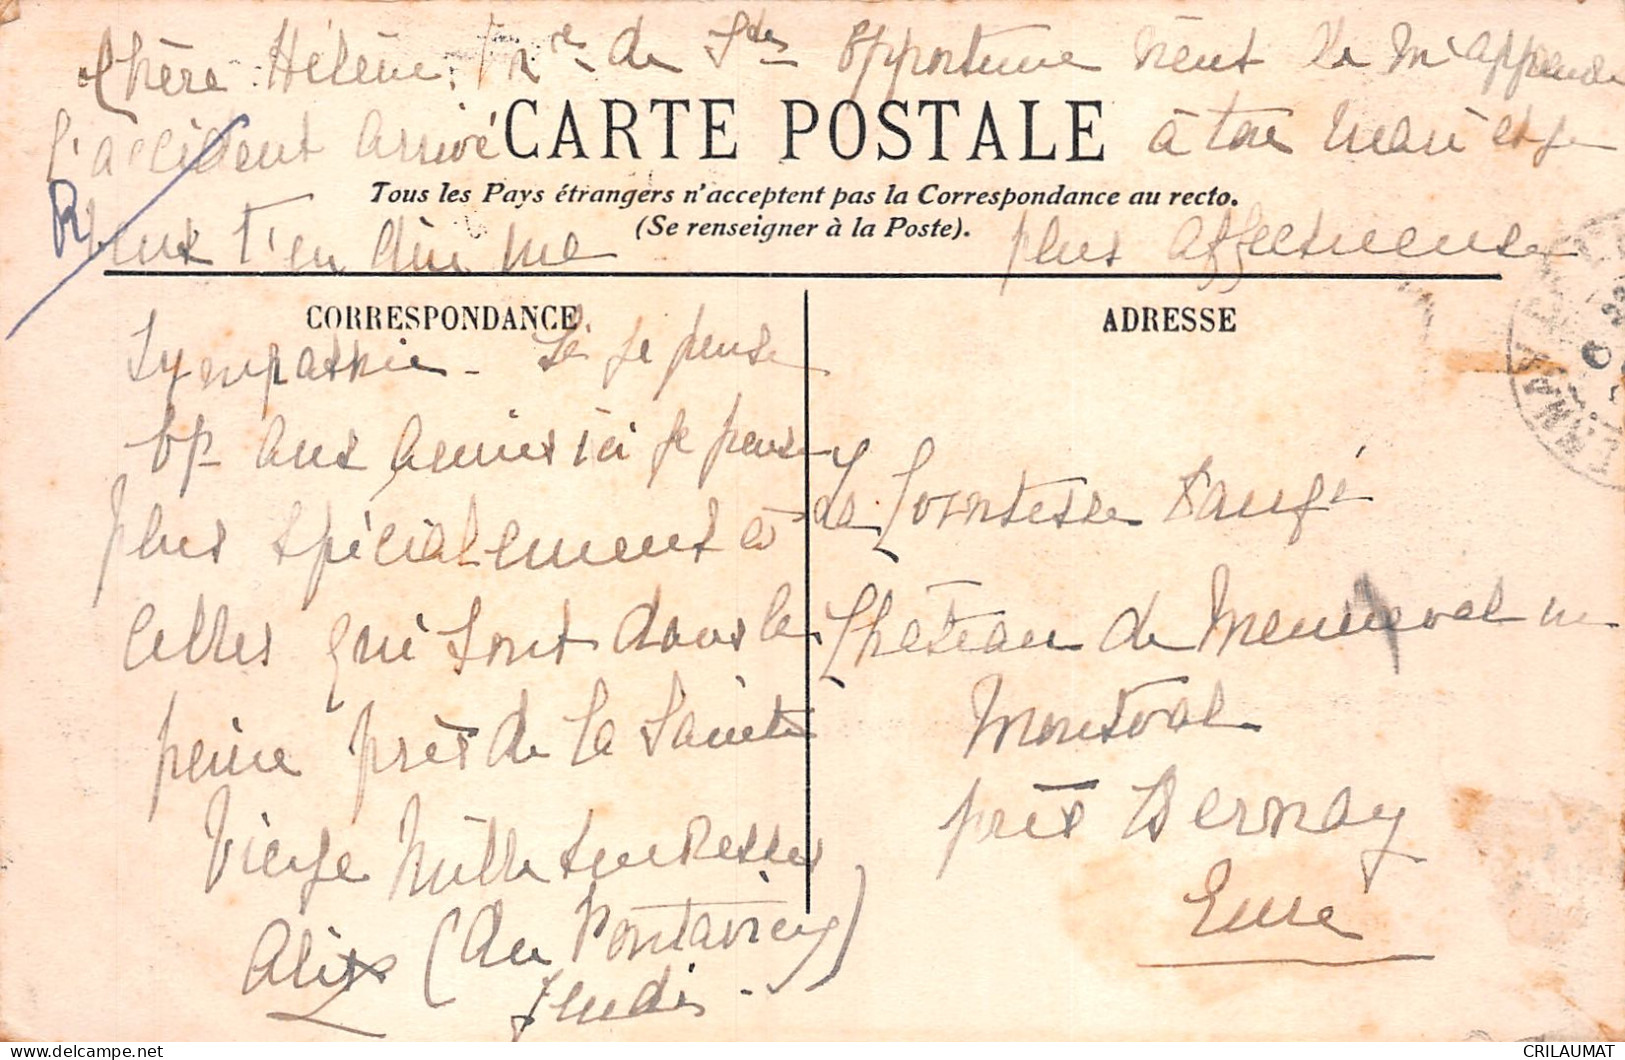 Chère Hélène. de Ste Opportune vient de m'apprendre
l'accident arrivé
CARTE POSTALE
à ton mari et je
Tous les Pays étrangers n'acceptent pas la Correspondance au recto.
(Se renseigner à la Poste).
R
veux t'en dire ma
plus affectueuse
CORRESPONDANCE
sympathie - Si je pense
aux amies ici je pense
plus spécialement à
celles qui sont dans la
peine près de la Sainte
Vierge Mille tendresses
Alix (du Pontavice)
Jeudi.
ADRESSE
Comtesse Daugé
Château de Menneval
Montval
près Bernay
Eure
CRILAUMAT